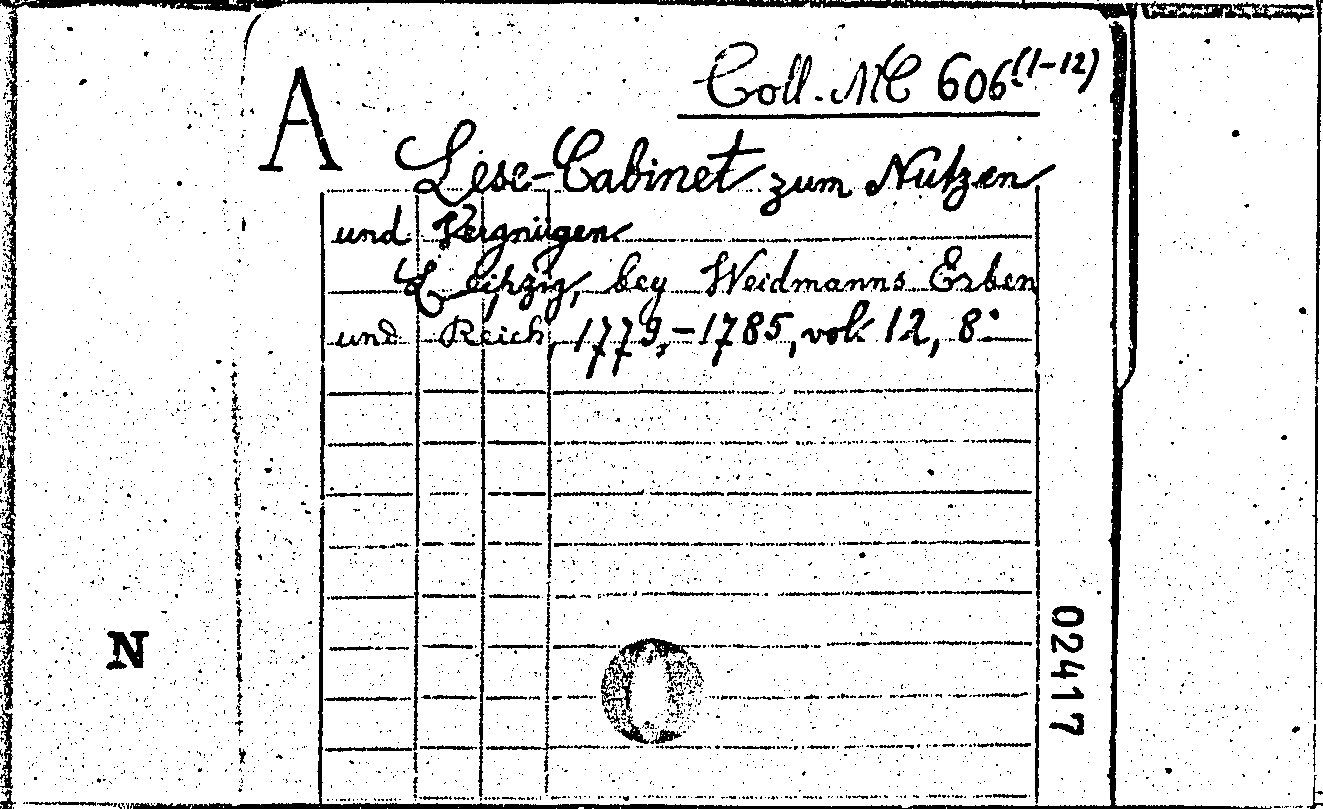 Coll. MC 606(1-12)
A
Lese-Cabinet zum Nutzen
und Vergnügen
Leipzig, bey Weidmanns Erben
und Reich, 1779,-1785, vol. 12, 8°
N
02417